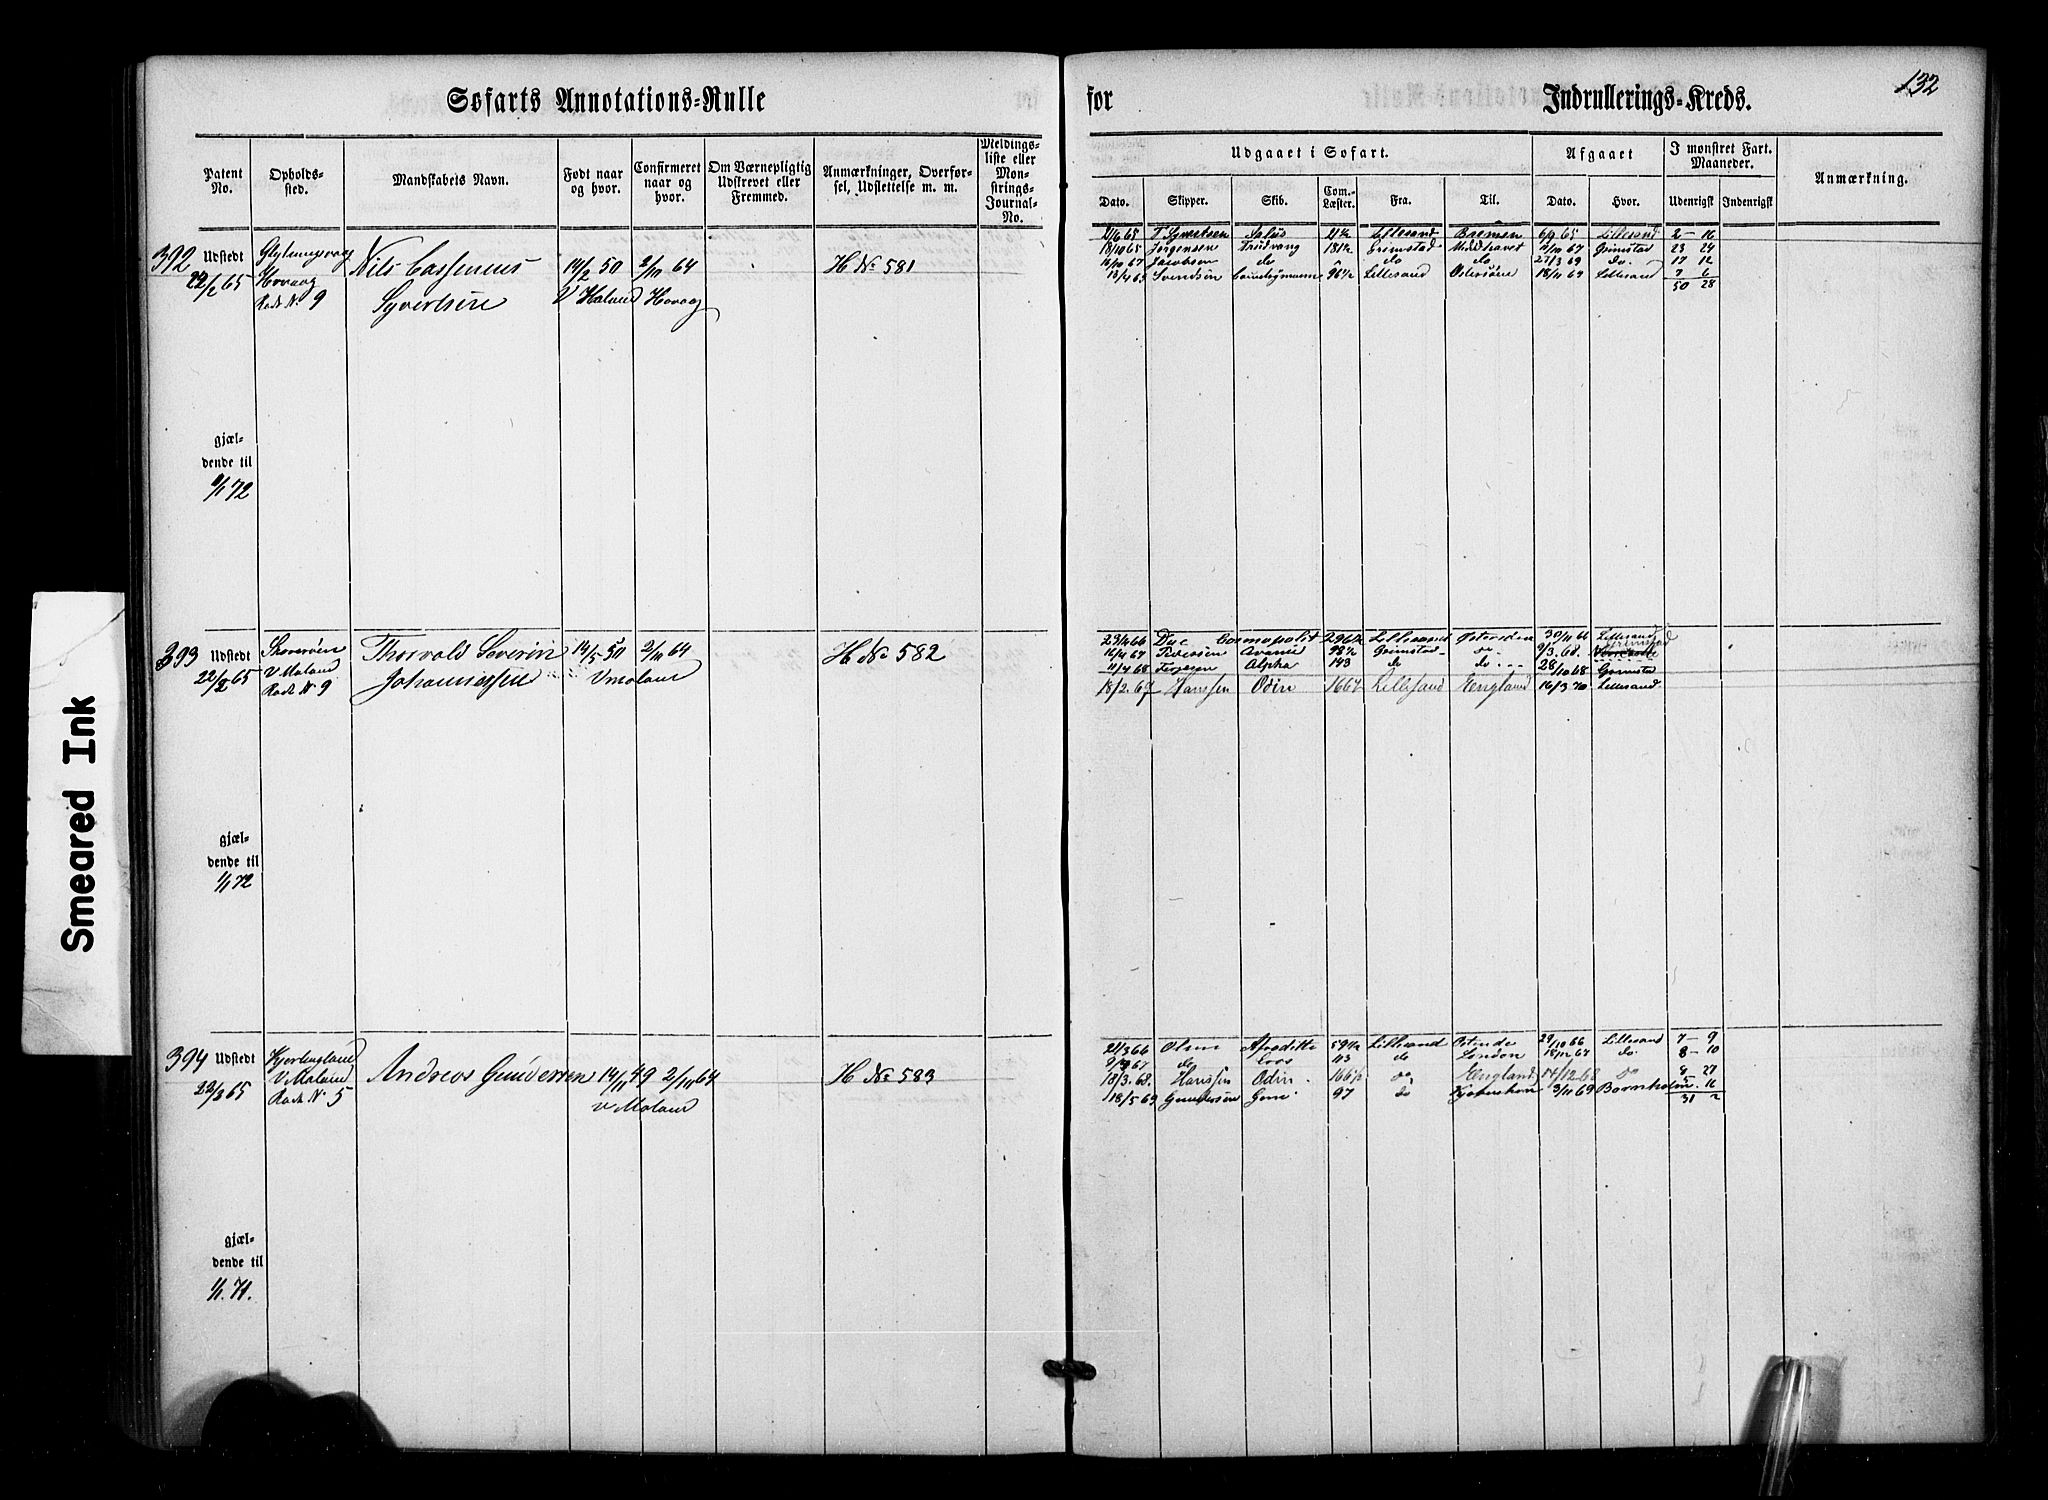 Søfarts Annotations-Rulle
for Indrullerings-Kreds.
132
Patent No. Opholdssted. Mandskabets Navn. Født naar og hvor. Confirmeret naar og hvor. Om Værnepligtig Udskrevet eller Fremmed. Anmærkninger, Overførsel, Udslettelse m. m. Meldingsliste eller Monstrings-Journal-No.
Udgaaet i Søfart. Afgaaet I mønstret Fart. Maaneder. Anmærkning.
Dato. Skipper. Skib. Com.-Læster. Fra. Til. Dato. Hvor. Udenrigsk Indenrigsk
392 Udstedt
22/2 65
Hovaag
Rode No 9
Nils Cassenius
Syvertsen
14/2 50
V Moland
2/10 64
Hovaag
H No 581
gjæl-
dende til
1/1 72
T Syvertsen Salus 21½ Lillesand Bremen 6/9 65 Lillesand 2 - 16
18/10 65 Jørgensen Frudvang 181½ Grimstad Middelhavet 2/10 67 Grimstad 23 24
16/10 67 Jacobsen do do do do 27/3 69 do. 17 12
13/4 69 Svendsen 96½ Lillesand Østersøen 18/11 69 Lillesand 7 6
50 28
393 Udstedt
22/2 65
V. Moland
Rode No 9
Thorvald Severin
Johannessen
14/5 50
2/10 64
V Moland
H No 582
gjæl-
dende til
1/1 72
23/4 66 Dye Cosmopolit 296½ Lillesand Ostende 30/11 66 Lillesand
16/4 67 Pedersen 98½ Grimstad do 9/3 68. Grimstad
11/4 68 Terjesen Alpha 143 do do 28/10 68 Grimstad
18/2. 69 Hanssen Odin 166½ Lillesand England 16/3 70 Lillesand
394 Udstedt
22/3 65
V. Moland
Rode No 5
Andreas Gundersen
14/11 49
V Moland
2/10 64
H No 583
gjæl-
dende til
1/1. 71.
21/3 66 Olsen Afroditte 59½ Lillesand Ostende 29/10 66 Lillesand 7 - 9
do 113 do London 18/12 67 do. 8 - 10
18/3. 68. Hanssen Odin. 166½ do England 17/12 68 do
18/5 69 Gundersen 97 do 3/11 69 Bornholm. 16
31 2
Smeared Ink